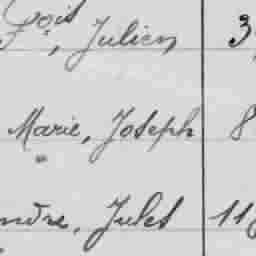 Julien 3
Marie, Joseph 8
ndre, Jules 118